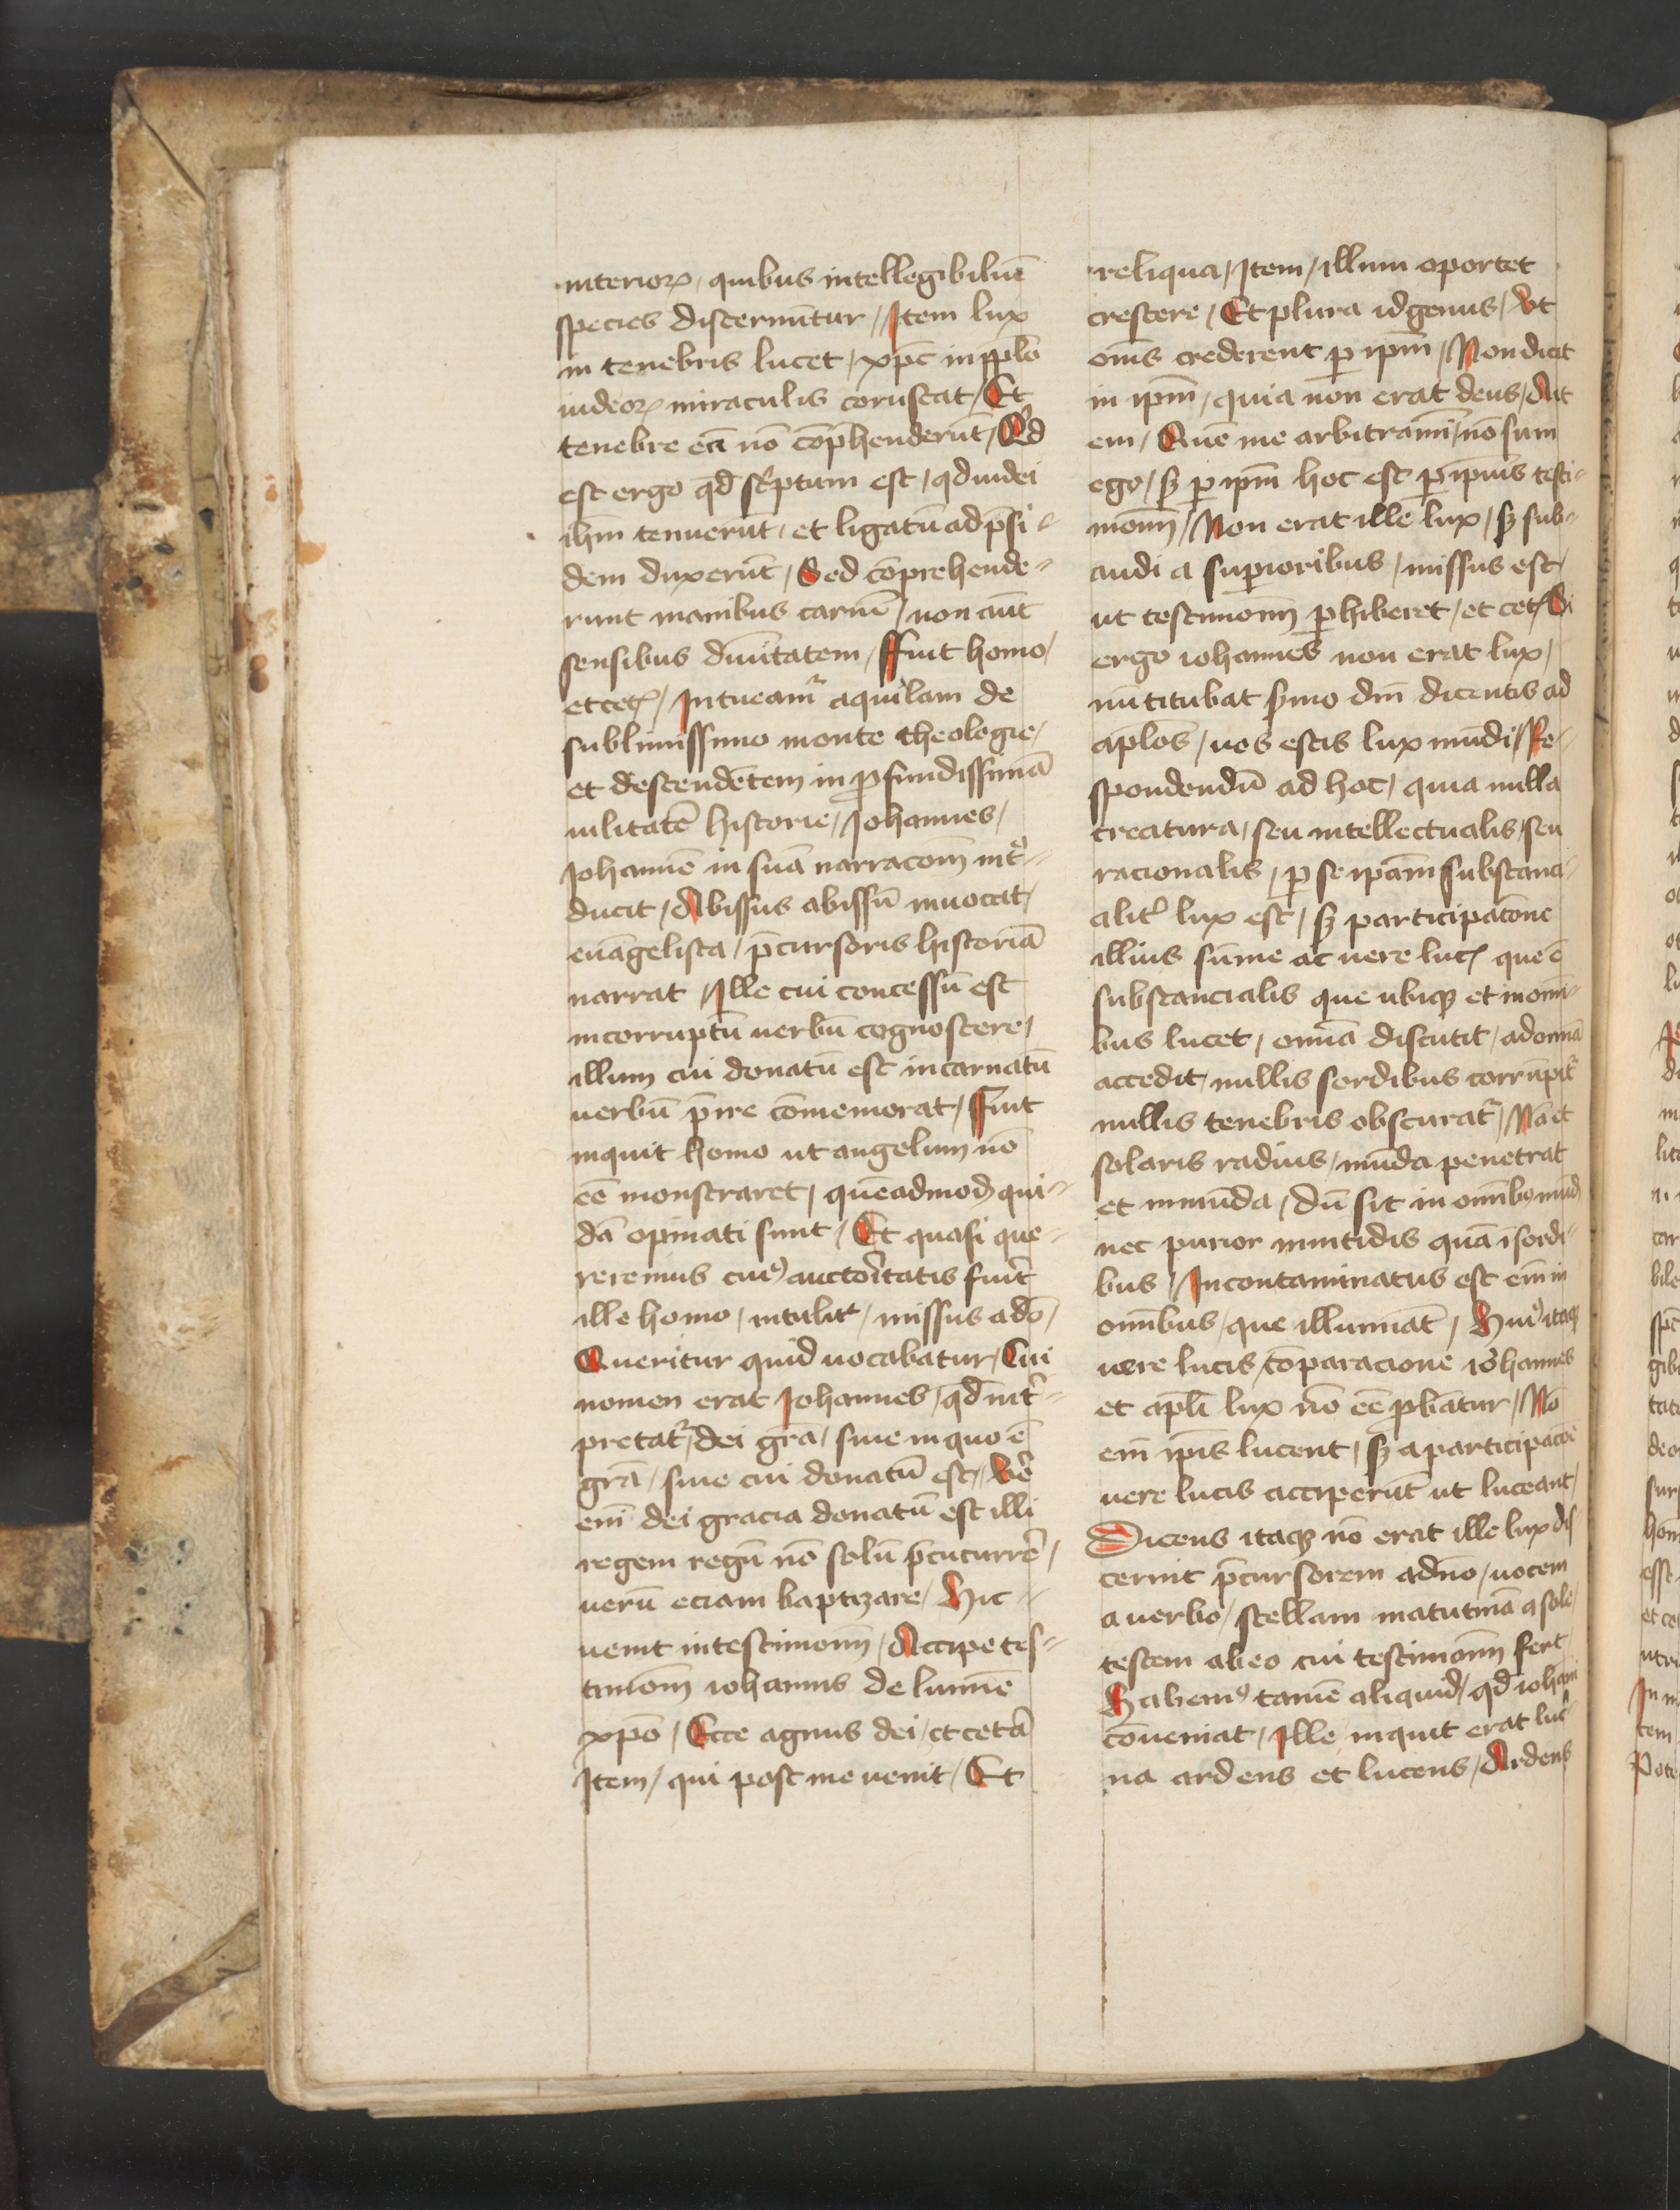 interioꝝ / quibus intellegibiliū
species discernūtur // Item lux
in tenebris lucet / xp̄c in pplō
iudeoꝝ miraculis coruscat / Et
tenebre eā nō cōp̄henderūt / Qd̄
est ergo qd̄ sc̄ptum est / qd iudei
ihm̄ tenuerūt / et ligatū ad p̄si-
dem duxerūt / Sed cōprehende-
runt manibus carnē / non aūt
sensibus diuītatem / ffuit homo /
et cet̄ / Intueamr̄ aquilam de
sublimissimo monte theologie /
et descendētem in ꝓfundissimā
uilitatē historie / Johannes /
Johannē in suā narracōm̄ int̄o-
ducit / Abissus abissū inuocat /
euāgelista / p̄cursoris historiā
narrat / Ille cui concessū est
incorruptū uerbū cognoscere /
illum cui donatū est incarnatū
uerbū p̄ire cōmemorat / ffuit
inquit homo ut angelum nō
eē monstraret / quēadmodꝫ qui-
dā opinati sunt / Et quasi que-
reremus cuiꝰ auctōritatis fuit̄
ille homo / intulit / missus a dō /
Queritur quid uocabatur / Cui
nomen erat Johannes / qd̄ int̄-
pretatr̄ / dei grā / siue in quo ē
grā / siue cui donatū est // Ue̅
em̄ dei gracia donatū est illi
regem regū nō solū p̄cucurrē /
uerū eciam baptizare / Hic -
uenit in testimonn̄ / Accipe tes-
timōm iohannis de lumīe
xpō / Ecce agnus dei / et cetā
Item / qui post me uenit / Et
reliqua / Item / illum oportet
crescere / Et plura id genus / Ut
om̄s crederent ꝑ ipm̄ / Non dicit
in ipm̄ / quia non erat deus / Aūt
em / Quē me arbitramī / nō sum
ego / sꝫ ꝑ ipm̄ hoc est ꝑ ip̄ius testi-
monn̄ / Non erat ille lux / sꝫ sub-
audi a suꝑioribus / missus est /
ut testimonn̄ ꝑhiberet / et cet̄ / Si
ergo iohannes non erat lux /
nū titubat ẜmo dm̄ dicentis ad
apl̄os / uos estis lux mūdi / Re-
spondendū ad hoc / quia nulla
creatura / seu intellectualis / seu
racionalis / ꝑ se ipām substanci-
alit̄ lux est / sꝫ participatōne
illius sūme ac uere luc̄ que ē
substancialis que ubiqꝫ et in omī-
bus lucet / omīa discutit / ad omīa
accedit / nullis sordibus corrūpit̄
nullis tenebris obscuratr̄ / Nā et
solaris radius / mūda penetrat
et inmūda / dū sit in omībꝰ mūdꝰ
nec purior in nitidis quā ī sordi-
bus / Incontaminatus est em̄ in
omībus / que illumīat / Huiꝰ itaqꝫ
uere lucis / cōparacione iohannes
et apl̄i lux nō eē ꝓbātur / Nō
em̄ ip̄is lucent / sꝫ a participacōe
uere lucis acciperūt ut luceant /
Dicens itaqꝫ nō erat ille lux dis
cernit p̄cursorem a dn̄o / uocem
a uerbo / stellam matutinā a sole /
testem ab eo cui testimonn̄ fert
Habemꝰ tamē aliquid / qd̄ iohāni
cōueniat / Ille inquit erat luc̄-
na ardens et lucens / Ardens